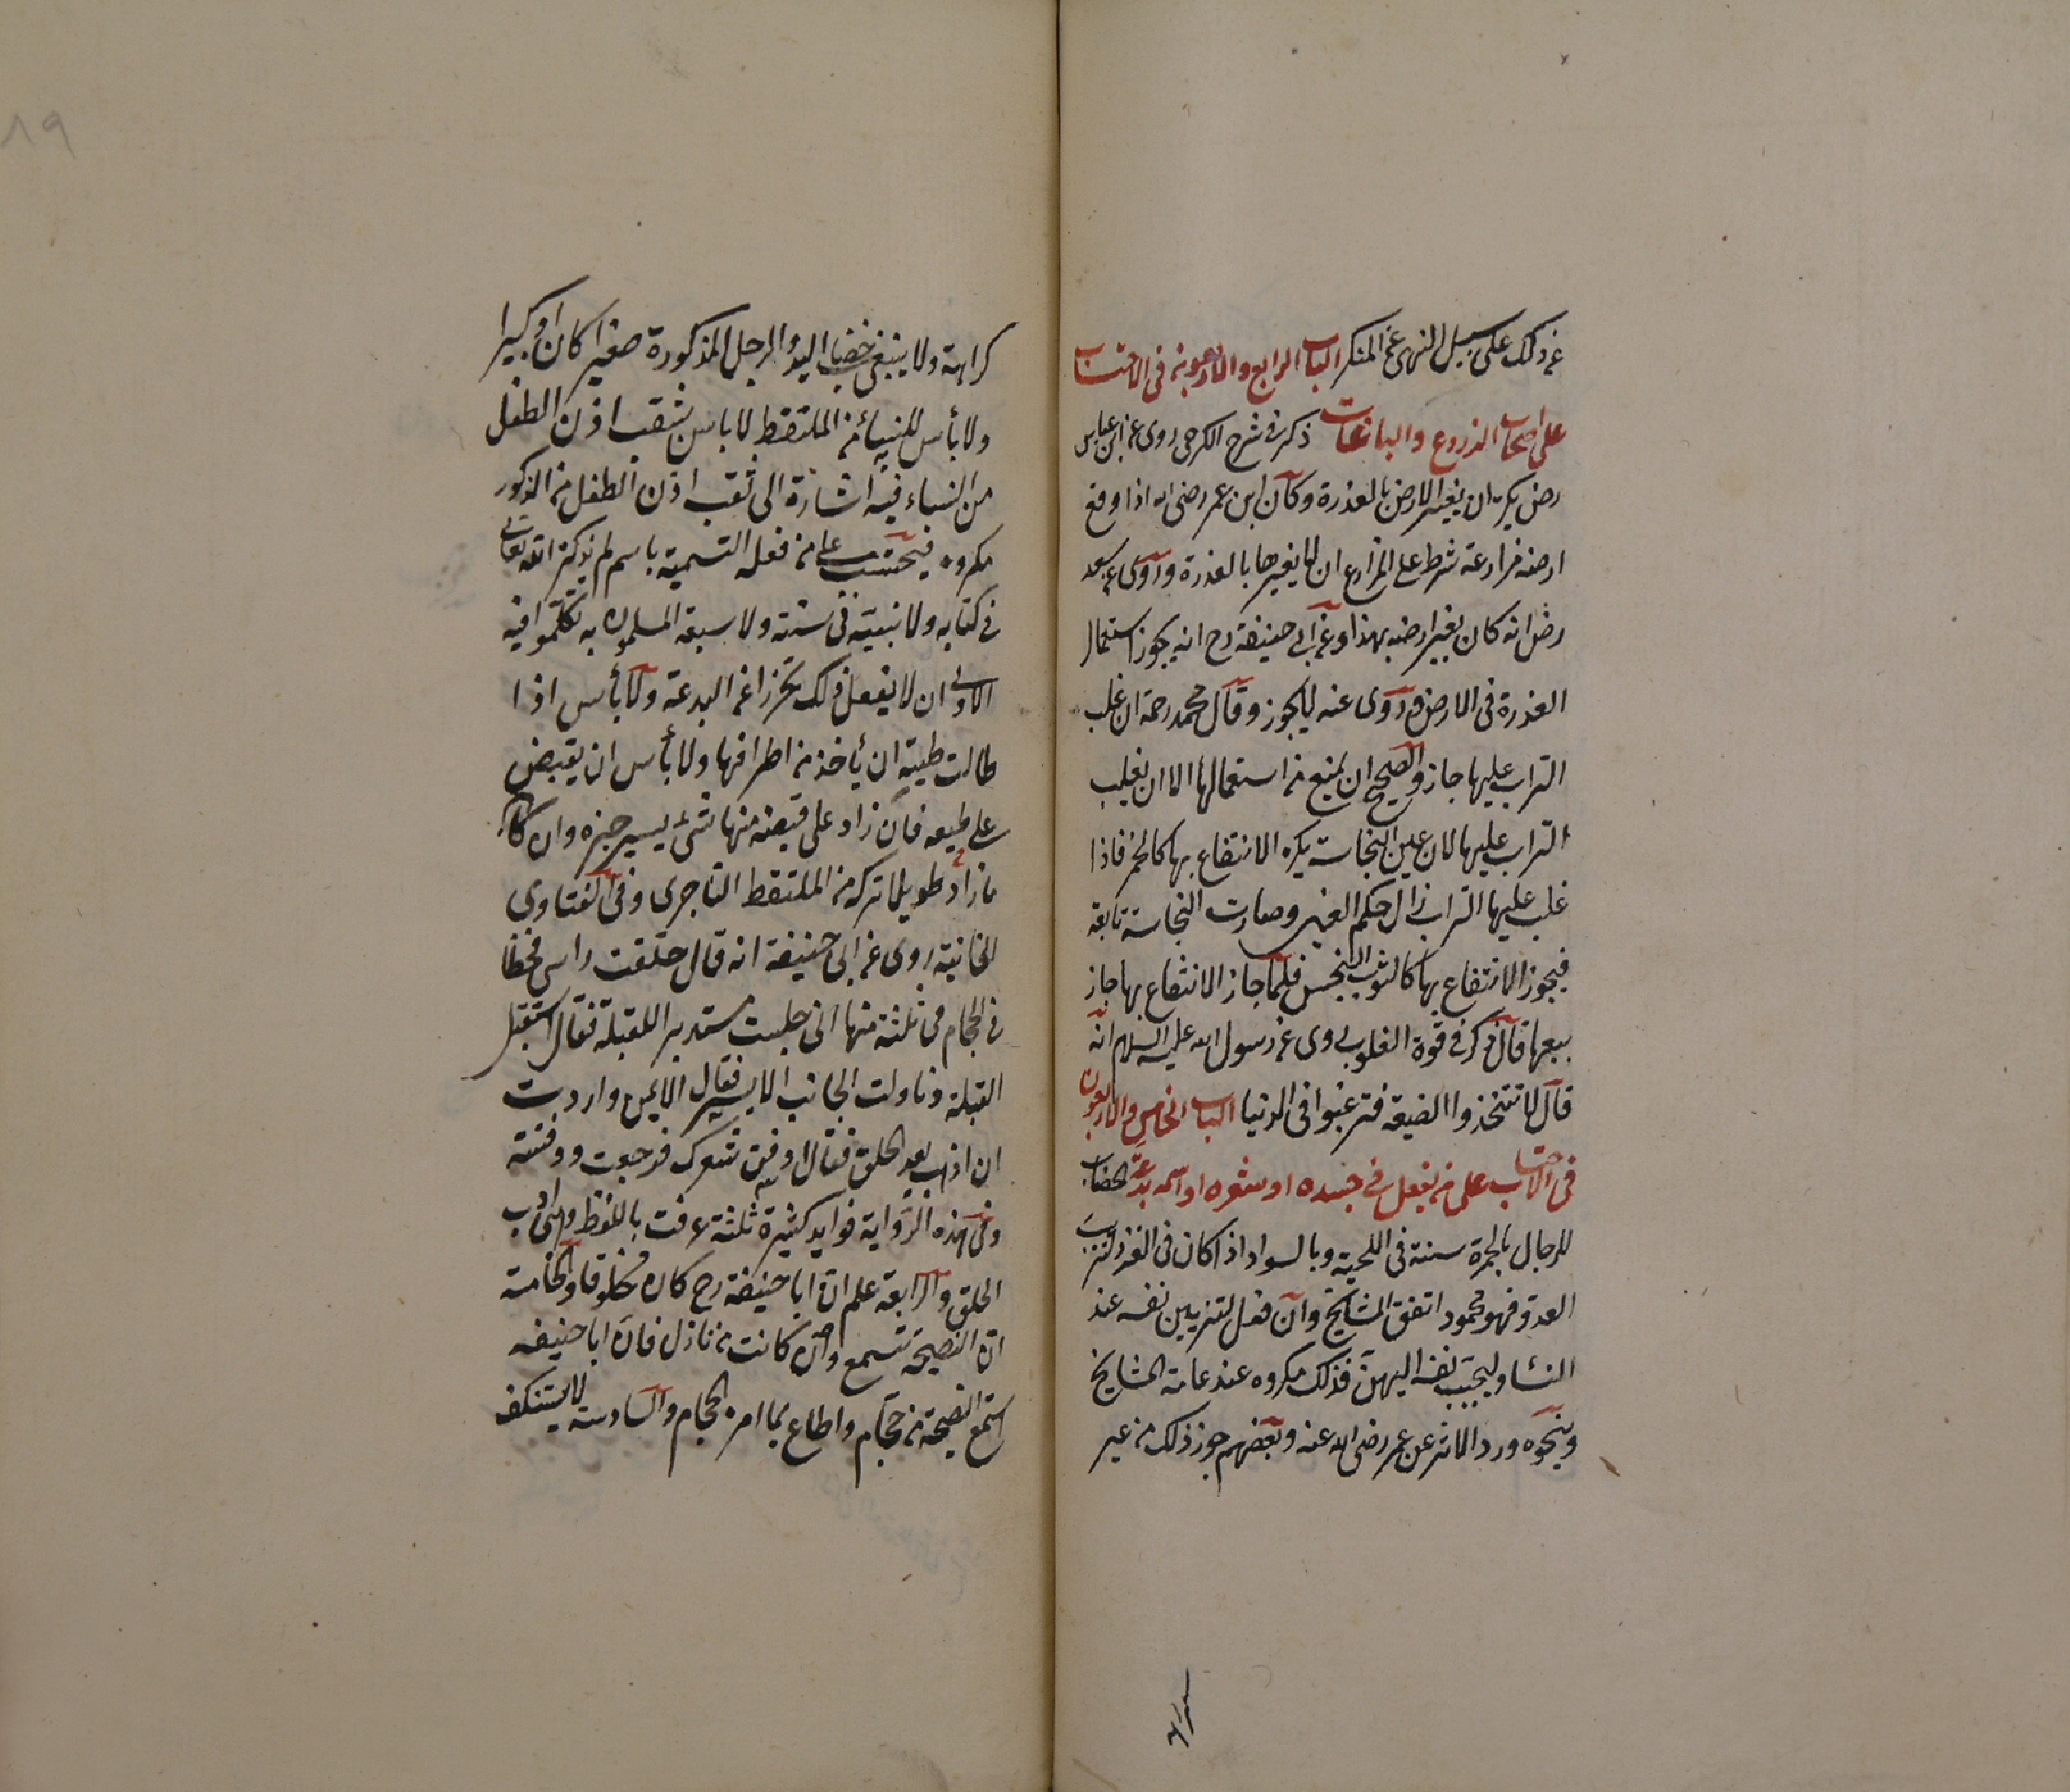 عن ذلك على سبيل النهى عن المنكر الباب الرابع والاربعون فى الاحتساب
على اصحاب الزروع والباغات ذكر فى شرح الكرخى روى عن ابن عباس
رض يكره ان يغير الارض بالعذرة وكان ابن عمر رضى الله اذا وقع
ارضه مزارعة شرط على المزارع ان لا يغيرها بالعذرة وروى عن سعد
رض انه كان يغير ارضه بهذا وعن ابى حنيفة رح انه يجوز استعمال
العذرة فى الارض وروى عنه لا يجوز وقال محمد رحمه ان غلب
التراب عليها جاز والصحيح ان يمنع من استعمالها الا ان يغلب
التراب عليها لان عين النجاسة يكره الانتفاع بها كالخمر فاذا
غلب عليها التراب زال حكم العين وصارت النجاسة تابعة
فيجوز الانتفاع بها كالثوب النجس فلما جاز الانتفاع بها جاز
بيعها قال ذكر فى قوة القلوب روى عن رسول الله عليه السلام انه
قال لا تتخذوا الضيعة فترغبوا فى الدنيا الباب الخامس والاربعون
فى الاحتساب على من يفعل فى جسده او شعره او اسمه بدعة الخضاب
للرجال بالحمرة سنة فى اللحية وبالسواد اذا كان فى الغزو لترهيب
العدو فهو محمود اتفق المشايخ وان فعل لتزيين نفسه عند
النساء وليحبب نفسه اليهن فذلك مكروه عند عامة المشايخ
وبنحوه ورد الاثر عن عمر رضى الله عنه وبعضهم جوز ذلك من غير
كراهة ولا ينبغى خضاب اليد والرجل المذكورة صغيرا كان او كبيرا
ولا بأس للنساء من الملتقط لا باس بثقب اذن الطفل
من النساء فيه اشارة الى ثقب اذن الطفل من الذكور
مكروه فيحتسب على من فعله التسمية باسم لم يذكره الله تعالى
فى كتابه ولا نبيه فى سنته ولا سبقه المسلمون به تكلموا فيه
الاولى ان لا يفعل ذلك تحرزا عن البدعة ولا بأس اذا
طالت لحيته ان يأخذ من اطرافها ولا بأس ان يقبض
على لحيته فان زاد على قبضته منها شئ يسير جزه وان كان
ما زاد طويلا تركه من الملتقط الناصرى وفى الفتاوى
الخانية روى عن ابى حنيفة انه قال حلقت راسى فخطأ
فى الحجام فى ثلثة منها انى جلست مستدبر اللقبلة فقال استقبل
القبلة وناولت الجانب الايسر فقال الايمن واردت
ان اذهب بعد الحلق فقال ادفن شعرك فرجعت ودفنته
وفى هذه الرواية فوايد كثيرة ثلثة عرفت باللفظ وهى اداب
الحلق والرابعة علم ان ابا حنيفة رح كان محلوقا والخامسة
ان النصيحة تسمع وان كانت من نازل فان ابا حنيفه
استمع النصيحة من حجام واطاع بما امره الحجام والسادسة لا يستنكف
٨٩